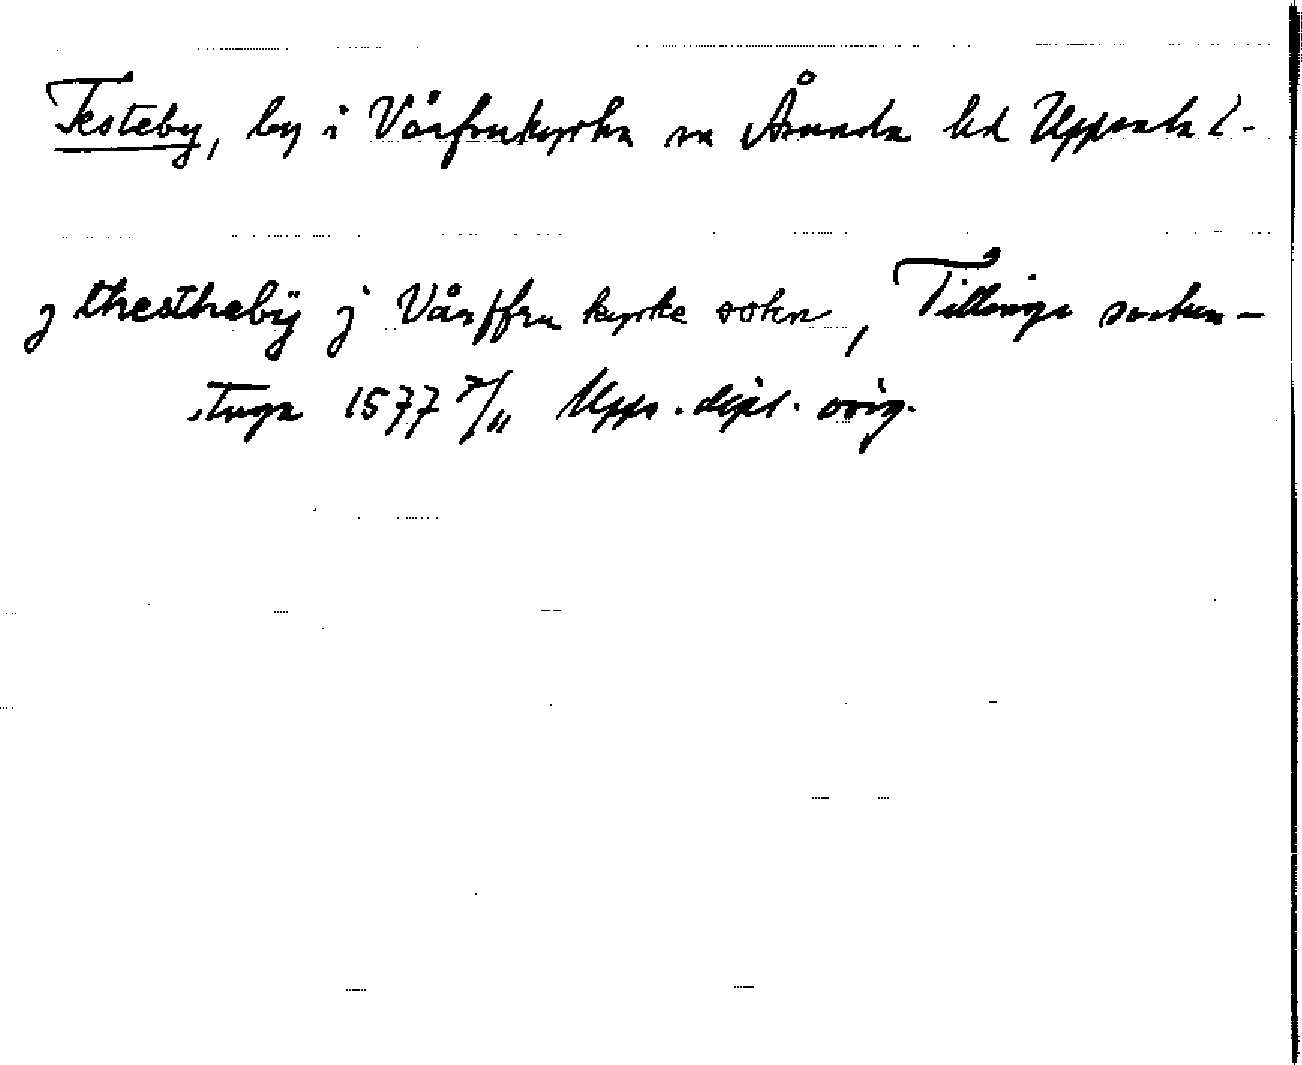 Testeby, by i Vårfrukyrka sn Åsunda hd Uppsala l.
j thesthebÿ j Vårffru kyrke sokn, Tillinge socken-
stuga 1577 7/11 Upps. dipl. orig.